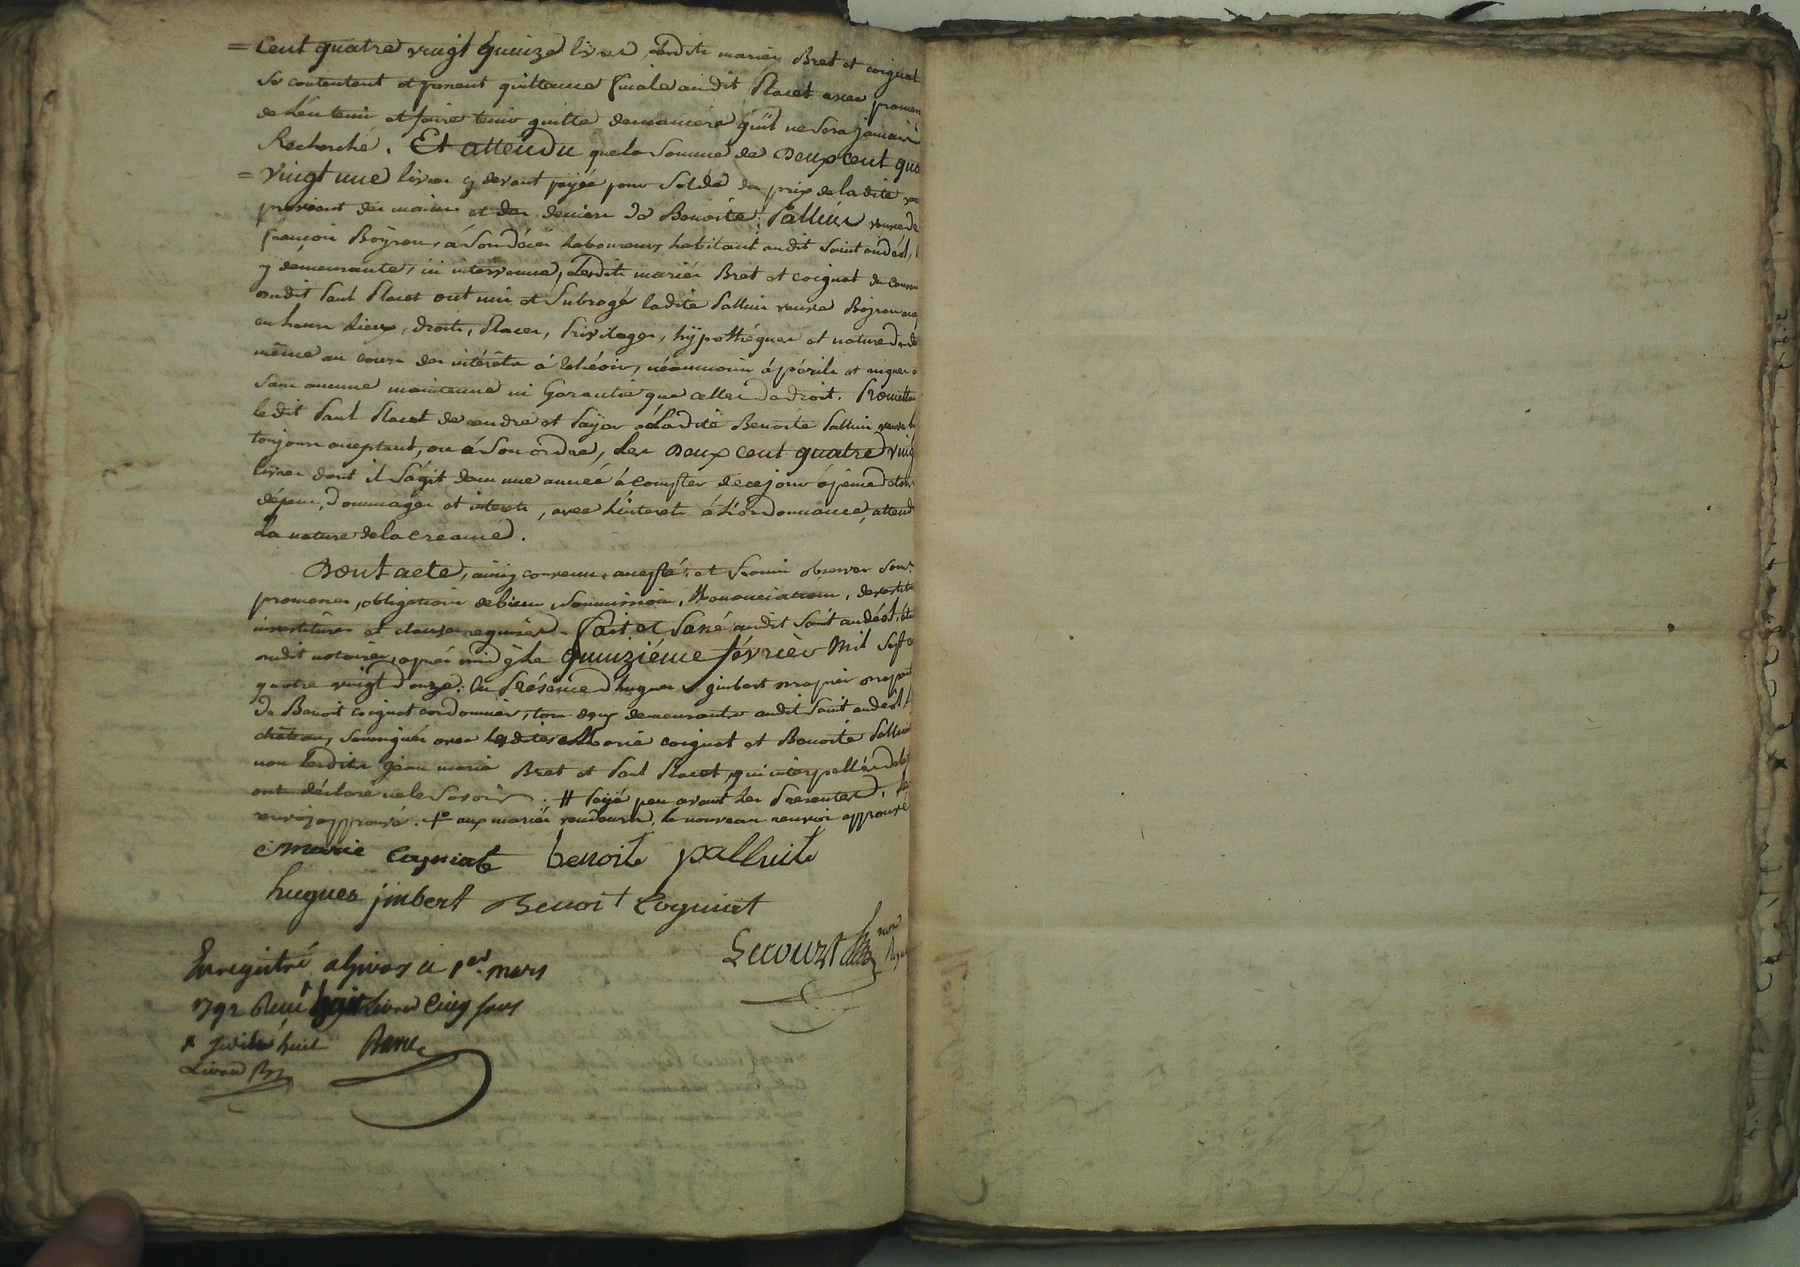 = Cent quatre vingt quinze livres, Lesdits mariés Bret et coignat
se contentent et passent quittance finale audit Placet avec promes
de l'en tenir et faire tenir quitte demanière qu'il ne sera jamais
Recherché. Et attendu que la somme de Deux cent qua
= vingt une livres cy devant payée pour solde du prix de la dite
provient des mains et des deniers de Benoite Palluis veuve de
françois Boyron, à son décès laboureur, habitant audit Saint andéol,
y demeurante, ici intervenue, Lesdits mariés Bret et coignat du
audit Paul Placet ont mis et subrogé ladite Palluis veuve Boyron
en leurs Lieux, droits, Places, Privilages, hÿpothéques et nature de
même au cours des intérêts à écheoir, néanmoins à périls et risques
sans aucune maintenue ni Garantie que celle de droit. Promettant
ledit Paul Placet de rendre et Payer à Ladite Benoite Palluis veuve
toujours acceptant, ou à son ordre, les Deux cent quatre ving
livres dont il s'agit dans une année à compter de ce jour à peine de tous
dépens, Dommages et interets, avec L'interets à L'ordonnance, attend
La nature de la creance.
Dont acte, ainsy convenu, accepté, et Promis observer sous
promesses, obligations de biens, soumissions, Renonciations, devestit
investitures et clauses requises. Fait et Passé audit Saint andéol,
audit notaire, après midy Le quinziéme février Mil sept
quatre vingt douze. En Présence d'hugues jmbert
de Benoit Coignat cordonnier, tous deux demeurants audit Saint andéol
château, soussignés avec lesdites Marie coignat et Benoite Palluis
non Lesdits jean marie Bret et Paul Placet, qui interpellés
ont déclaré ne le savoir. # Payé peu avant Les Presentes,
renvoi approuvé. + aux mariés vendeurs, le nouveau renvoi approuvé
Marie Coyniat benoite palluite
hugues jmbert Benoit Coyniat
Lecourt
Enregistré a Givors le 1er mars
1792 Reçu huit Livres Cinq sous
huit
Livres